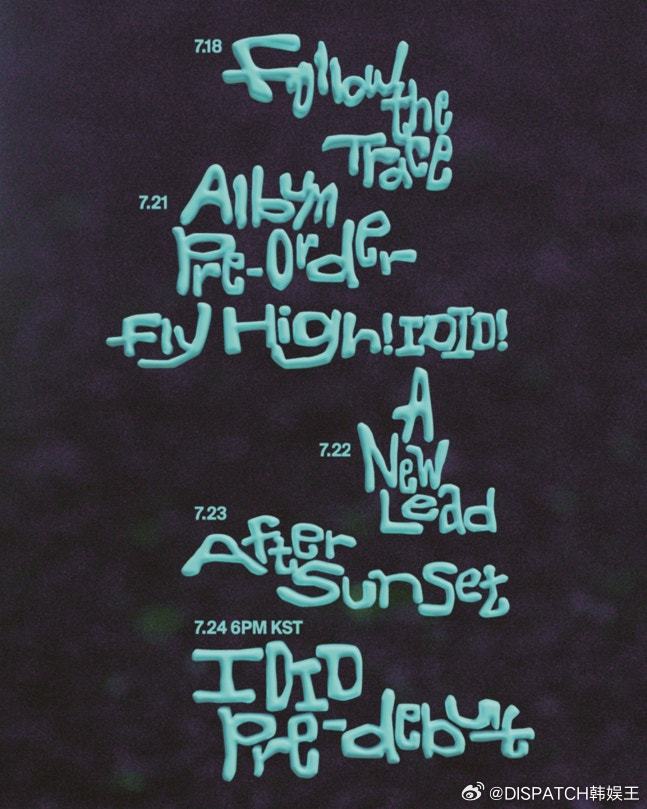 7.18 Follow the
Trace
7.21 Album
Pre-Order
Fly High! IDID!
A
7.22 New
Lead
7.23
After
Sunset
7.24 6PM KST
IDID
Pre-debut
@DISPATCH韩娱王